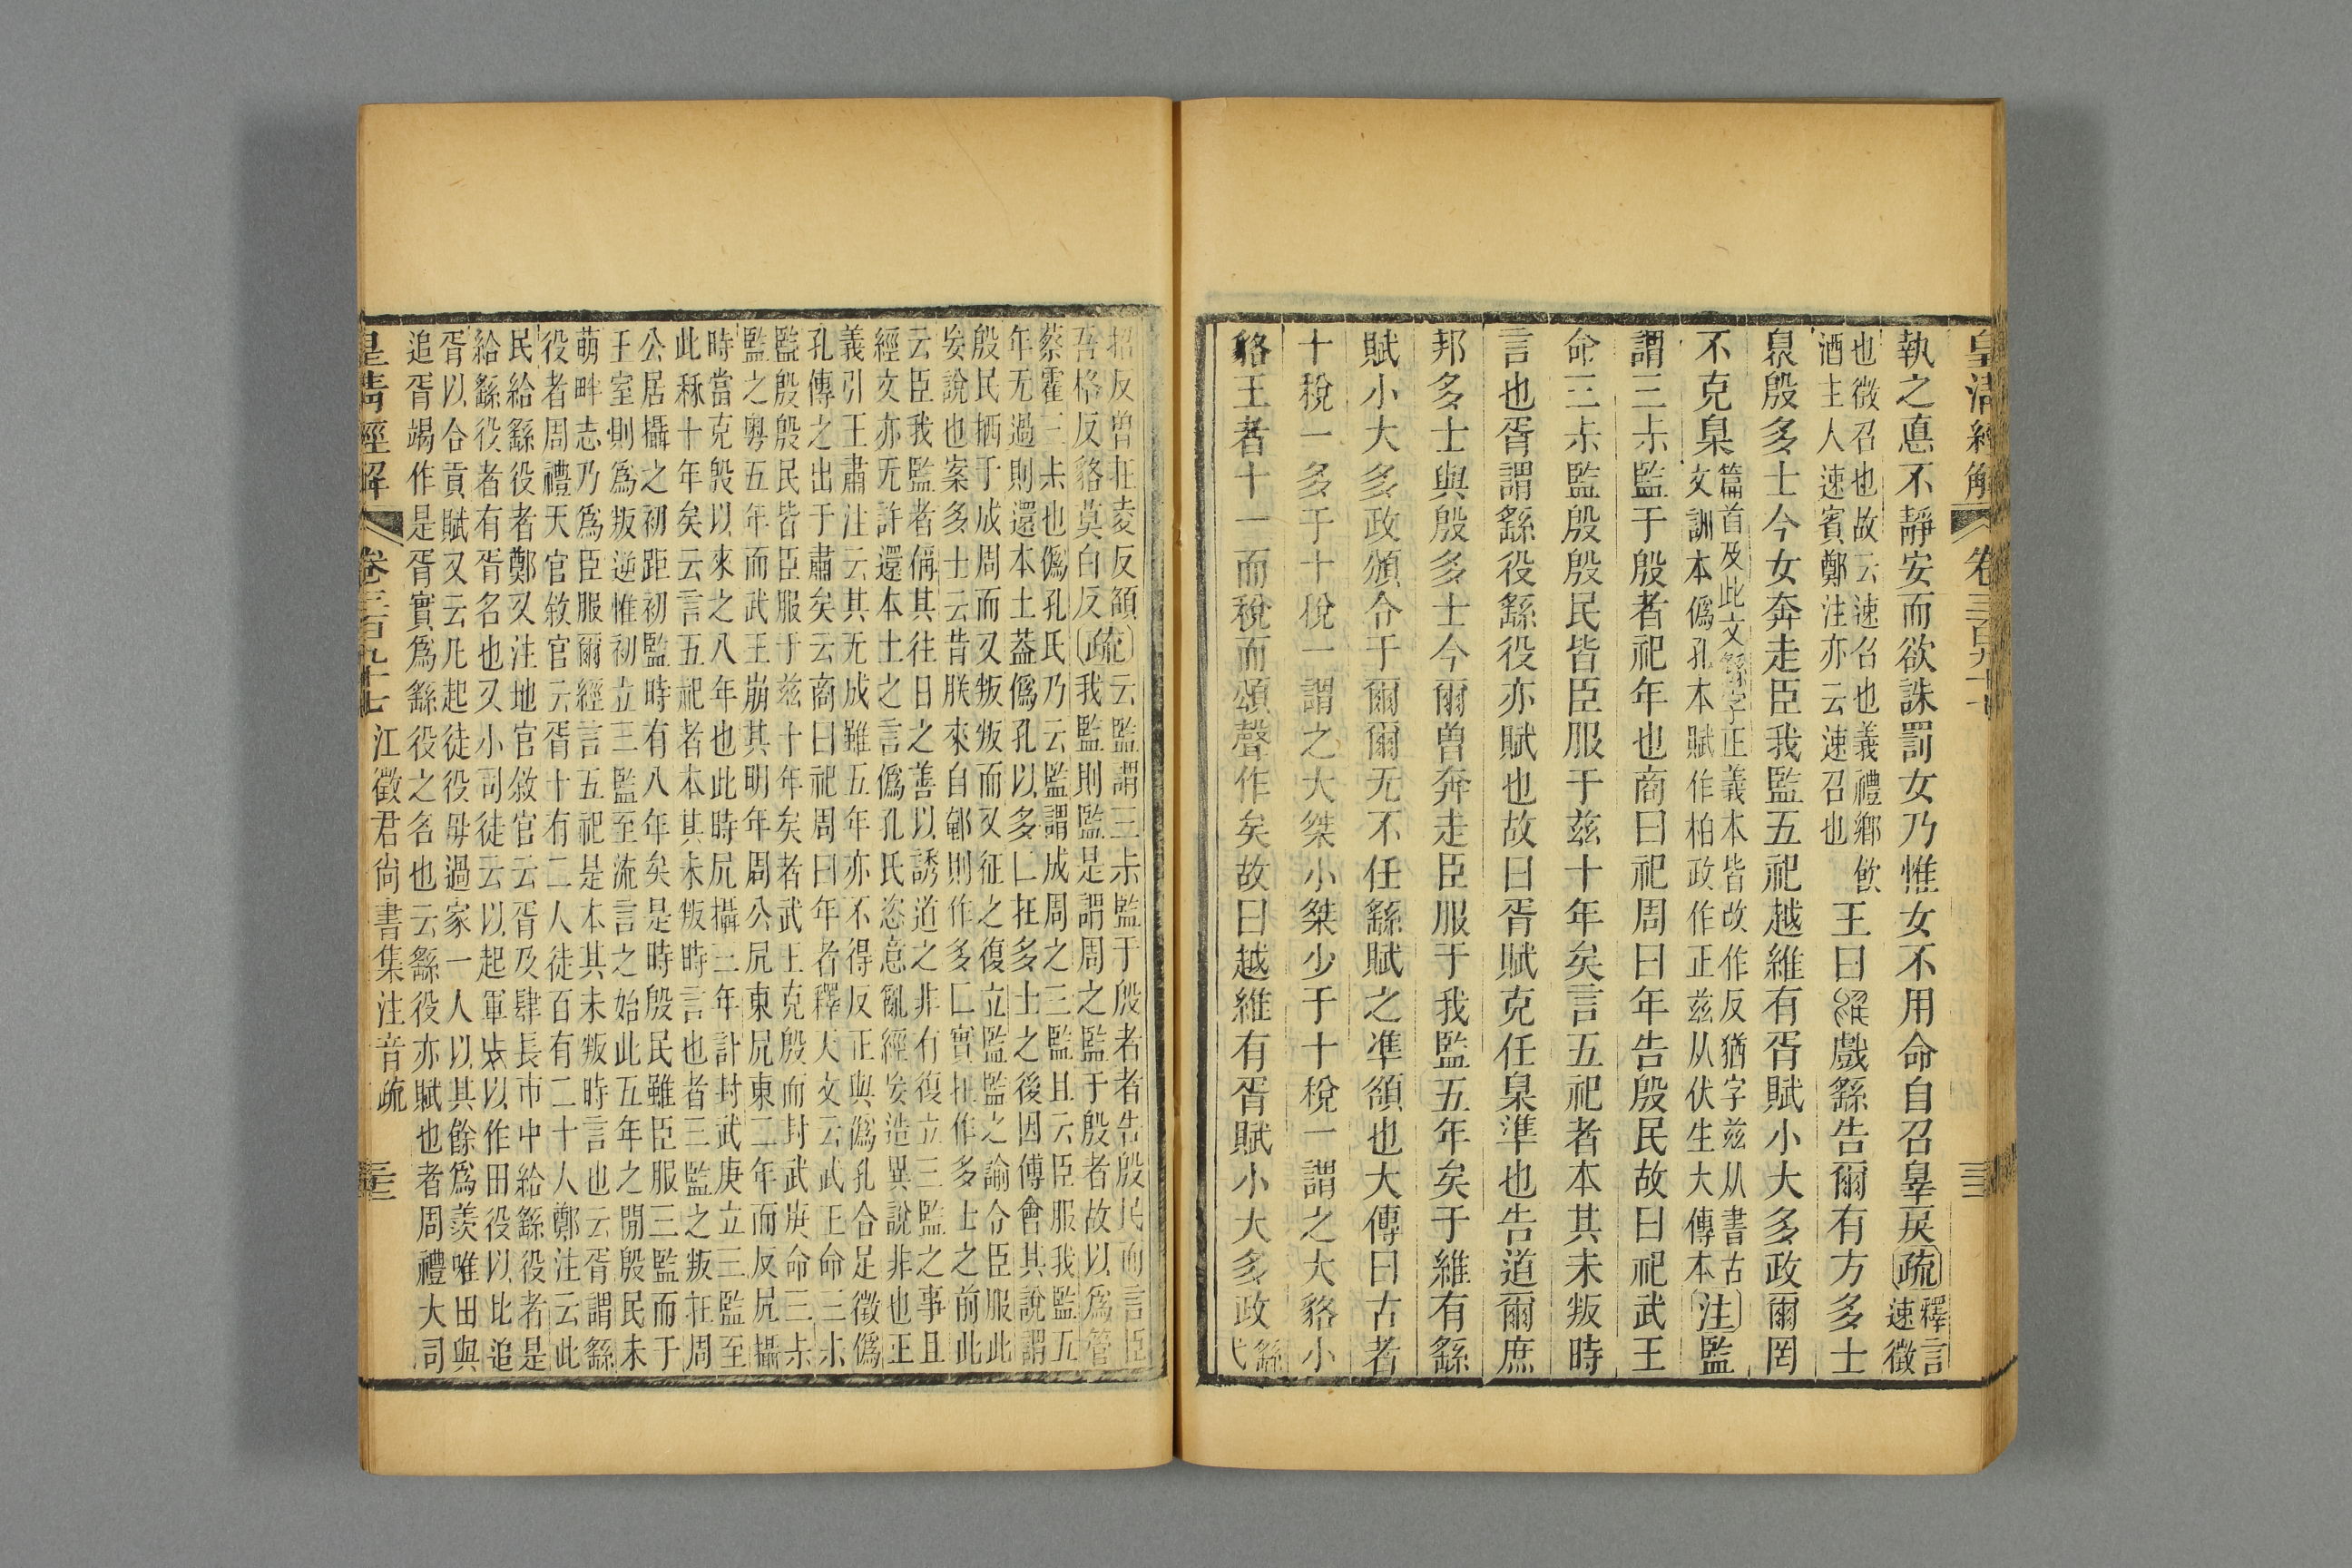 執之悳不靜安而欲誅罰女乃惟女不用命自召辠戾疏釋言速徵
也徵召也故云速召也義禮鄉飲酒主人速賓鄭注亦云速召也王曰繇戲繇告爾有方多士
臮殷多士今女奔走臣我監五祀越維有胥賦小大多政爾罔
不克臬篇首及此文繇字正義本皆改作反猶字兹从書古文訓本僞孔本賦作柏政作正兹从伏生大傳本注監
謂三尗監于殷者祀年也商曰祀周曰年告殷民故曰祀武王
命三尗監殷殷民皆臣服于兹十年矣言五祀者本其未叛時
言也胥謂繇役繇役亦賦也故曰胥賦克任臬準也告道爾庶
邦多士與殷多士今爾曽奔走臣服于我監五年矣于維有繇
賦小大多政頒令于爾爾无不任繇賦之準頟也大傳曰古者
十稅一多于十稅一謂之大桀小桀少于十稅一謂之大貉小
貉王者十一而稅而頌聲作矣故曰越維有胥賦小大多政繇弋
招反曽在夌反頟疏云監謂三尗監于殷者者告殷民而言臣
吾格反貉莫白反我監則監是謂周之監于殷者故以爲管
蔡霍三尗也僞孔氏乃云監謂成周之三監且云臣服我監五
年无過則還本土葢僞孔以多匚在多士之後因傅會其說謂
殷民栖于成周而又叛叛而又征之復立監監之諭令臣服此
妄說也案多士云昔朕來自郼則作多匚實在作多士之前此
云臣我監者偁其往日之善以誘道之非有復立三監之事且
經文亦无許還本土之言僞孔氏恣意亂經妄造異說非也正
義引王肅注云其无成雖五年亦不得反正與僞孔合足徵僞
孔傳之出于肅矣云商曰祀周曰年者釋天文云武王命三尗
監殷殷民皆臣服于兹十年矣者武王克殷而封武庚命三尗
監之粵五年而武王崩其明年周公凥東凥東二年而反凥攝
時當克殷以來之八年也此時凥攝三年計封武庚立三監至
此稌十年矣云言五祀者本其未叛時言也者三監之叛在周
公居攝之初距初監時有八年矣是時殷民雖臣服三監而于
王室則爲叛逆惟初立三監至流言之始此五年之閒殷民未
萌畔志乃爲臣服爾經言五祀是本其未叛時言也云胥謂繇
役者周禮天官敘官云胥十有二人徒百有二十人鄭注云此
民給繇役者鄭又注地官敘官云胥及肆長市中給繇役者是
給繇役者有胥名也又小司徒云以起軍旅以作田役以比追
胥以令貢賦又云凡起徒役毋過家一人以其餘爲羨唯田與
追胥竭作是胥實爲繇役之名也云繇役亦賦也者周禮大司
皇淸經解 卷三百九十七 江徵君尙書集注音疏 三